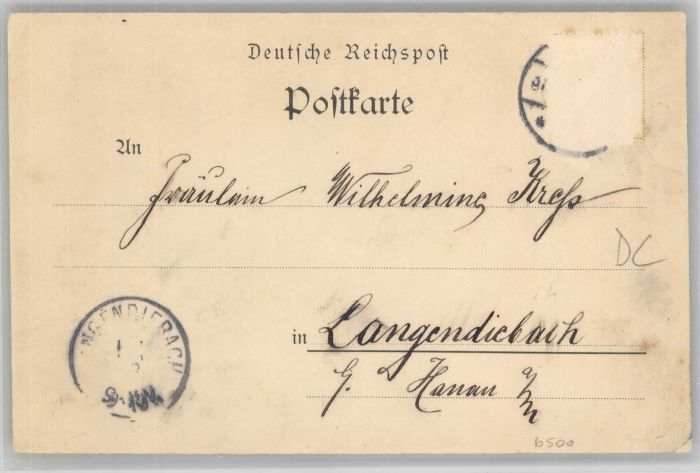 Deutsche Reichspost
Postkarte
An
Fräulein Wilhelmine Kress
DC
in Langendiebach
LANGENDIEBACH
Hanau
6500